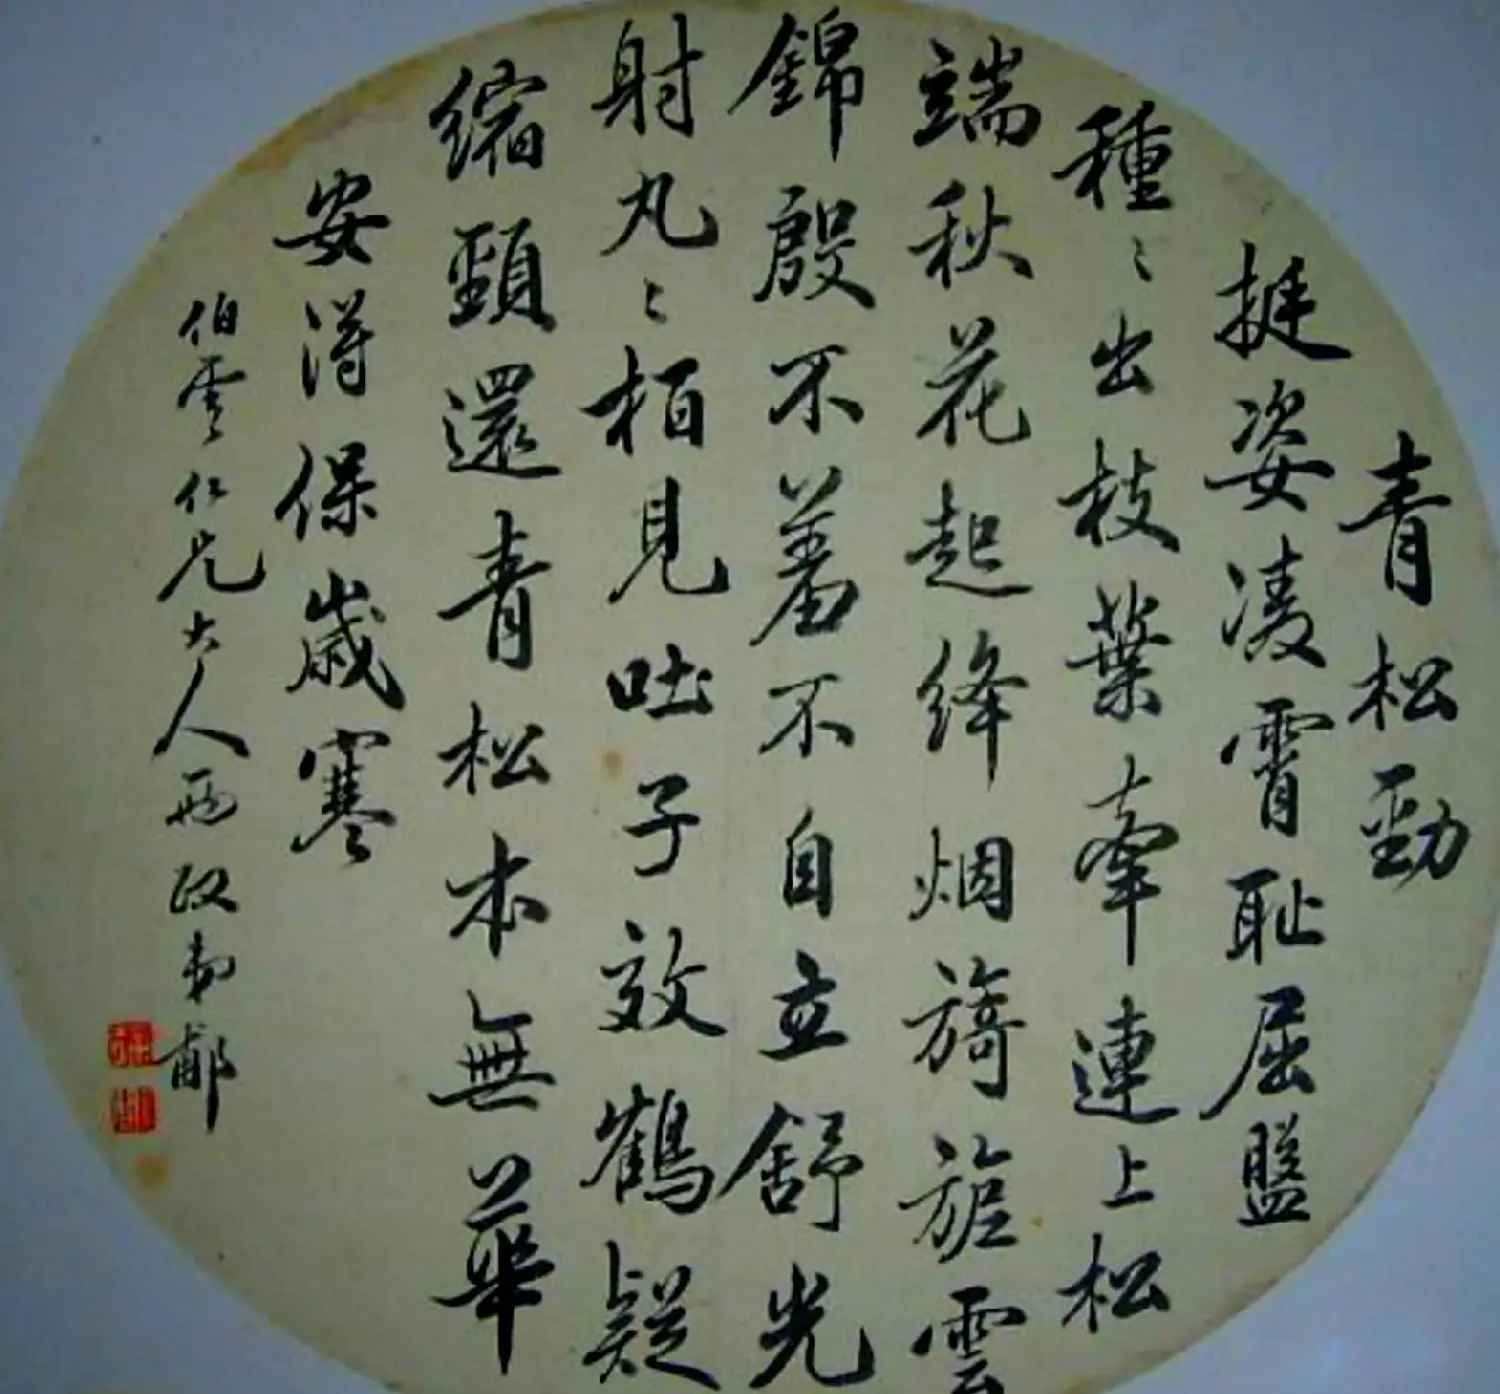 青松勁
挺姿凌霄恥屈盤
種〻出枝葉牽連上松
端秋花起絳烟旖旎雲
錦殷不羞不自立舒光
射丸〻栢見吐子效鶴疑
縮頸還青松本無華
安得保歲寒
伯雲仁兄大人兩政弟郙